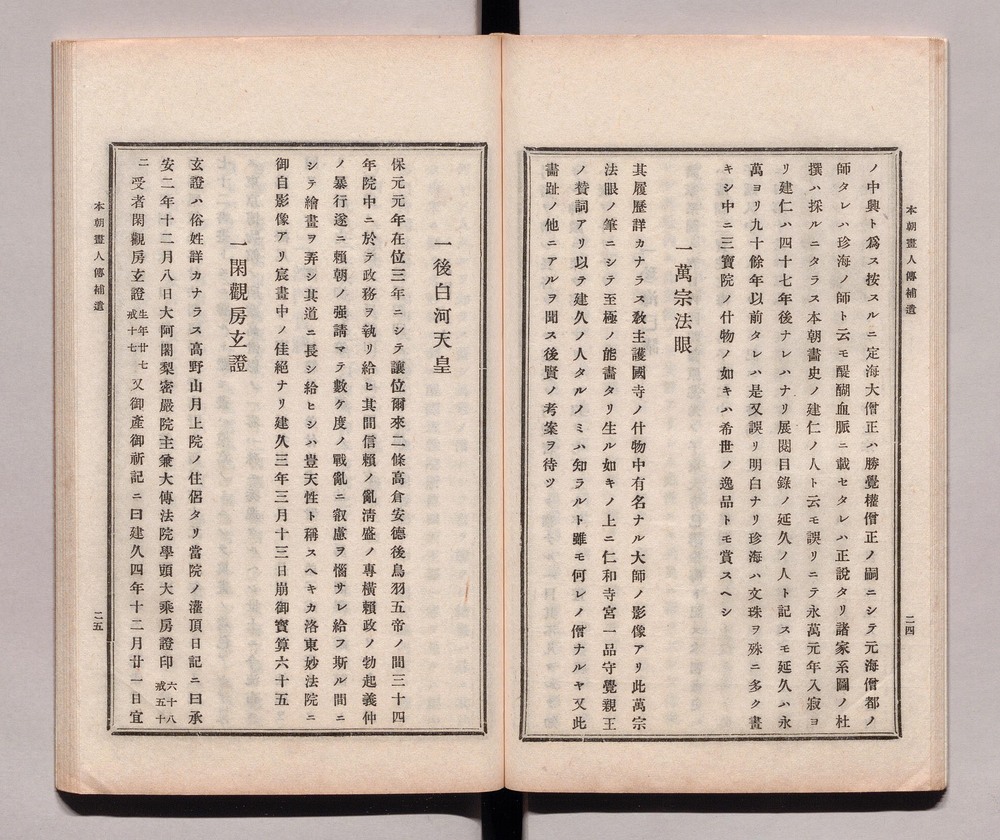 本朝畫人傳補遺
二四
ノ中興ト爲ス按スルニ定海大僧正ハ勝覺權僧正ノ嗣ニシテ元海僧都ノ
師タレハ珍海ノ師ト云モ醍醐血脈ニ載セタレハ正說タリ諸家系圖ノ杜
撰ハ採ルニタラス本朝畫史ノ建仁ノ人ト云モ誤リニテ永萬元年入寂ヨ
リ建仁ハ四十七年後ナレハナリ展閱目錄ノ延久ノ人ト記スモ延久ハ永
萬ヨリ九十餘年以前タレハ是又誤リ明白ナリ珍海ハ文珠ヲ殊ニ多ク畫
キシ中ニ三寶院ノ什物ノ如キハ希世ノ逸品トモ賞スヘシ
一萬宗法眼
其履歷詳カナラス敎主護國寺ノ什物中有名ナル大師ノ影像アリ此萬宗
法眼ノ筆ニシテ至極ノ能畵タリ生ル如キノ上ニ仁和寺宮一品守覺親王
ノ賛詞アリ以テ建久ノ人タルノミハ知ラルト雖モ何レノ僧ナルヤ又此
畵趾ノ他ニアルヲ聞ス後賢ノ考案ヲ待ツ
一後白河天皇
保元元年在位三年ニシテ讓位爾來二條高倉安德後鳥羽五帝ノ間三十四
年院中ニ於テ政務ヲ執リ給ヒ其間信賴ノ亂淸盛ノ專橫賴政ノ勃起義仲
ノ暴行遂ニ賴朝ノ強請マテ數ケ度ノ戰亂ニ叡慮ヲ惱サレ給フ斯ル間ニ
シテ繪畫ヲ弄シ其道ニ長シ給ヒシハ豈天性ト稱スヘキカ洛東妙法院ニ
御自影像アリ宸畫中ノ佳絕ナリ建久三年三月十三日崩御寳算六十五
一閑觀房玄證
玄證ハ俗姓詳カナラス高野山月上院ノ住侶タリ當院ノ灌頂日記ニ曰承
安二年十二月八日大阿闍梨密嚴院主兼大傳法院學頭大乘房證印 六十八 戒五十
ニ 受者閑觀房玄證 生年廿七 戒十七 又御產御祈記ニ曰建久四年十二月廿一日宜
本朝畫人傳補遺
二五